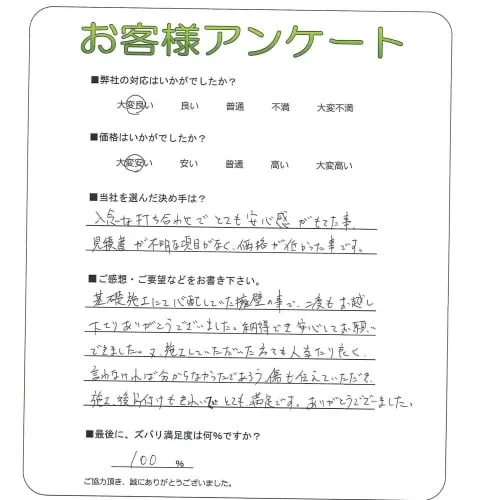 お客様アンケート
■弊社の対応はいかがでしたか？
大変良い 良い 普通 不満 大変不満
■価格はいかがでしたか？
大変安い 安い 普通 高い 大変高い
■当社を選んだ決め手は？
入念な打ち合わせで とても 安心感 がもてた事、
見積書 が不明な項目がなく、価格が低かった事です。
■ご感想・ご要望などをお書き下さい。
基礎施工にて心配していた擁壁の事で、二度も お越し
下さり ありがとうございました。納得でき 安心してお願い
できました。又、施工していただいた方ても人あたり良く、
言わなければ分からなかったであろう 傷も 伝えていただき、
施工後片付けも きれいで とても 満足です。ありがとうございました。
■最後に、ズバリ満足度は何％ですか？
100 ％
ご協力頂き、誠にありがとうございました。